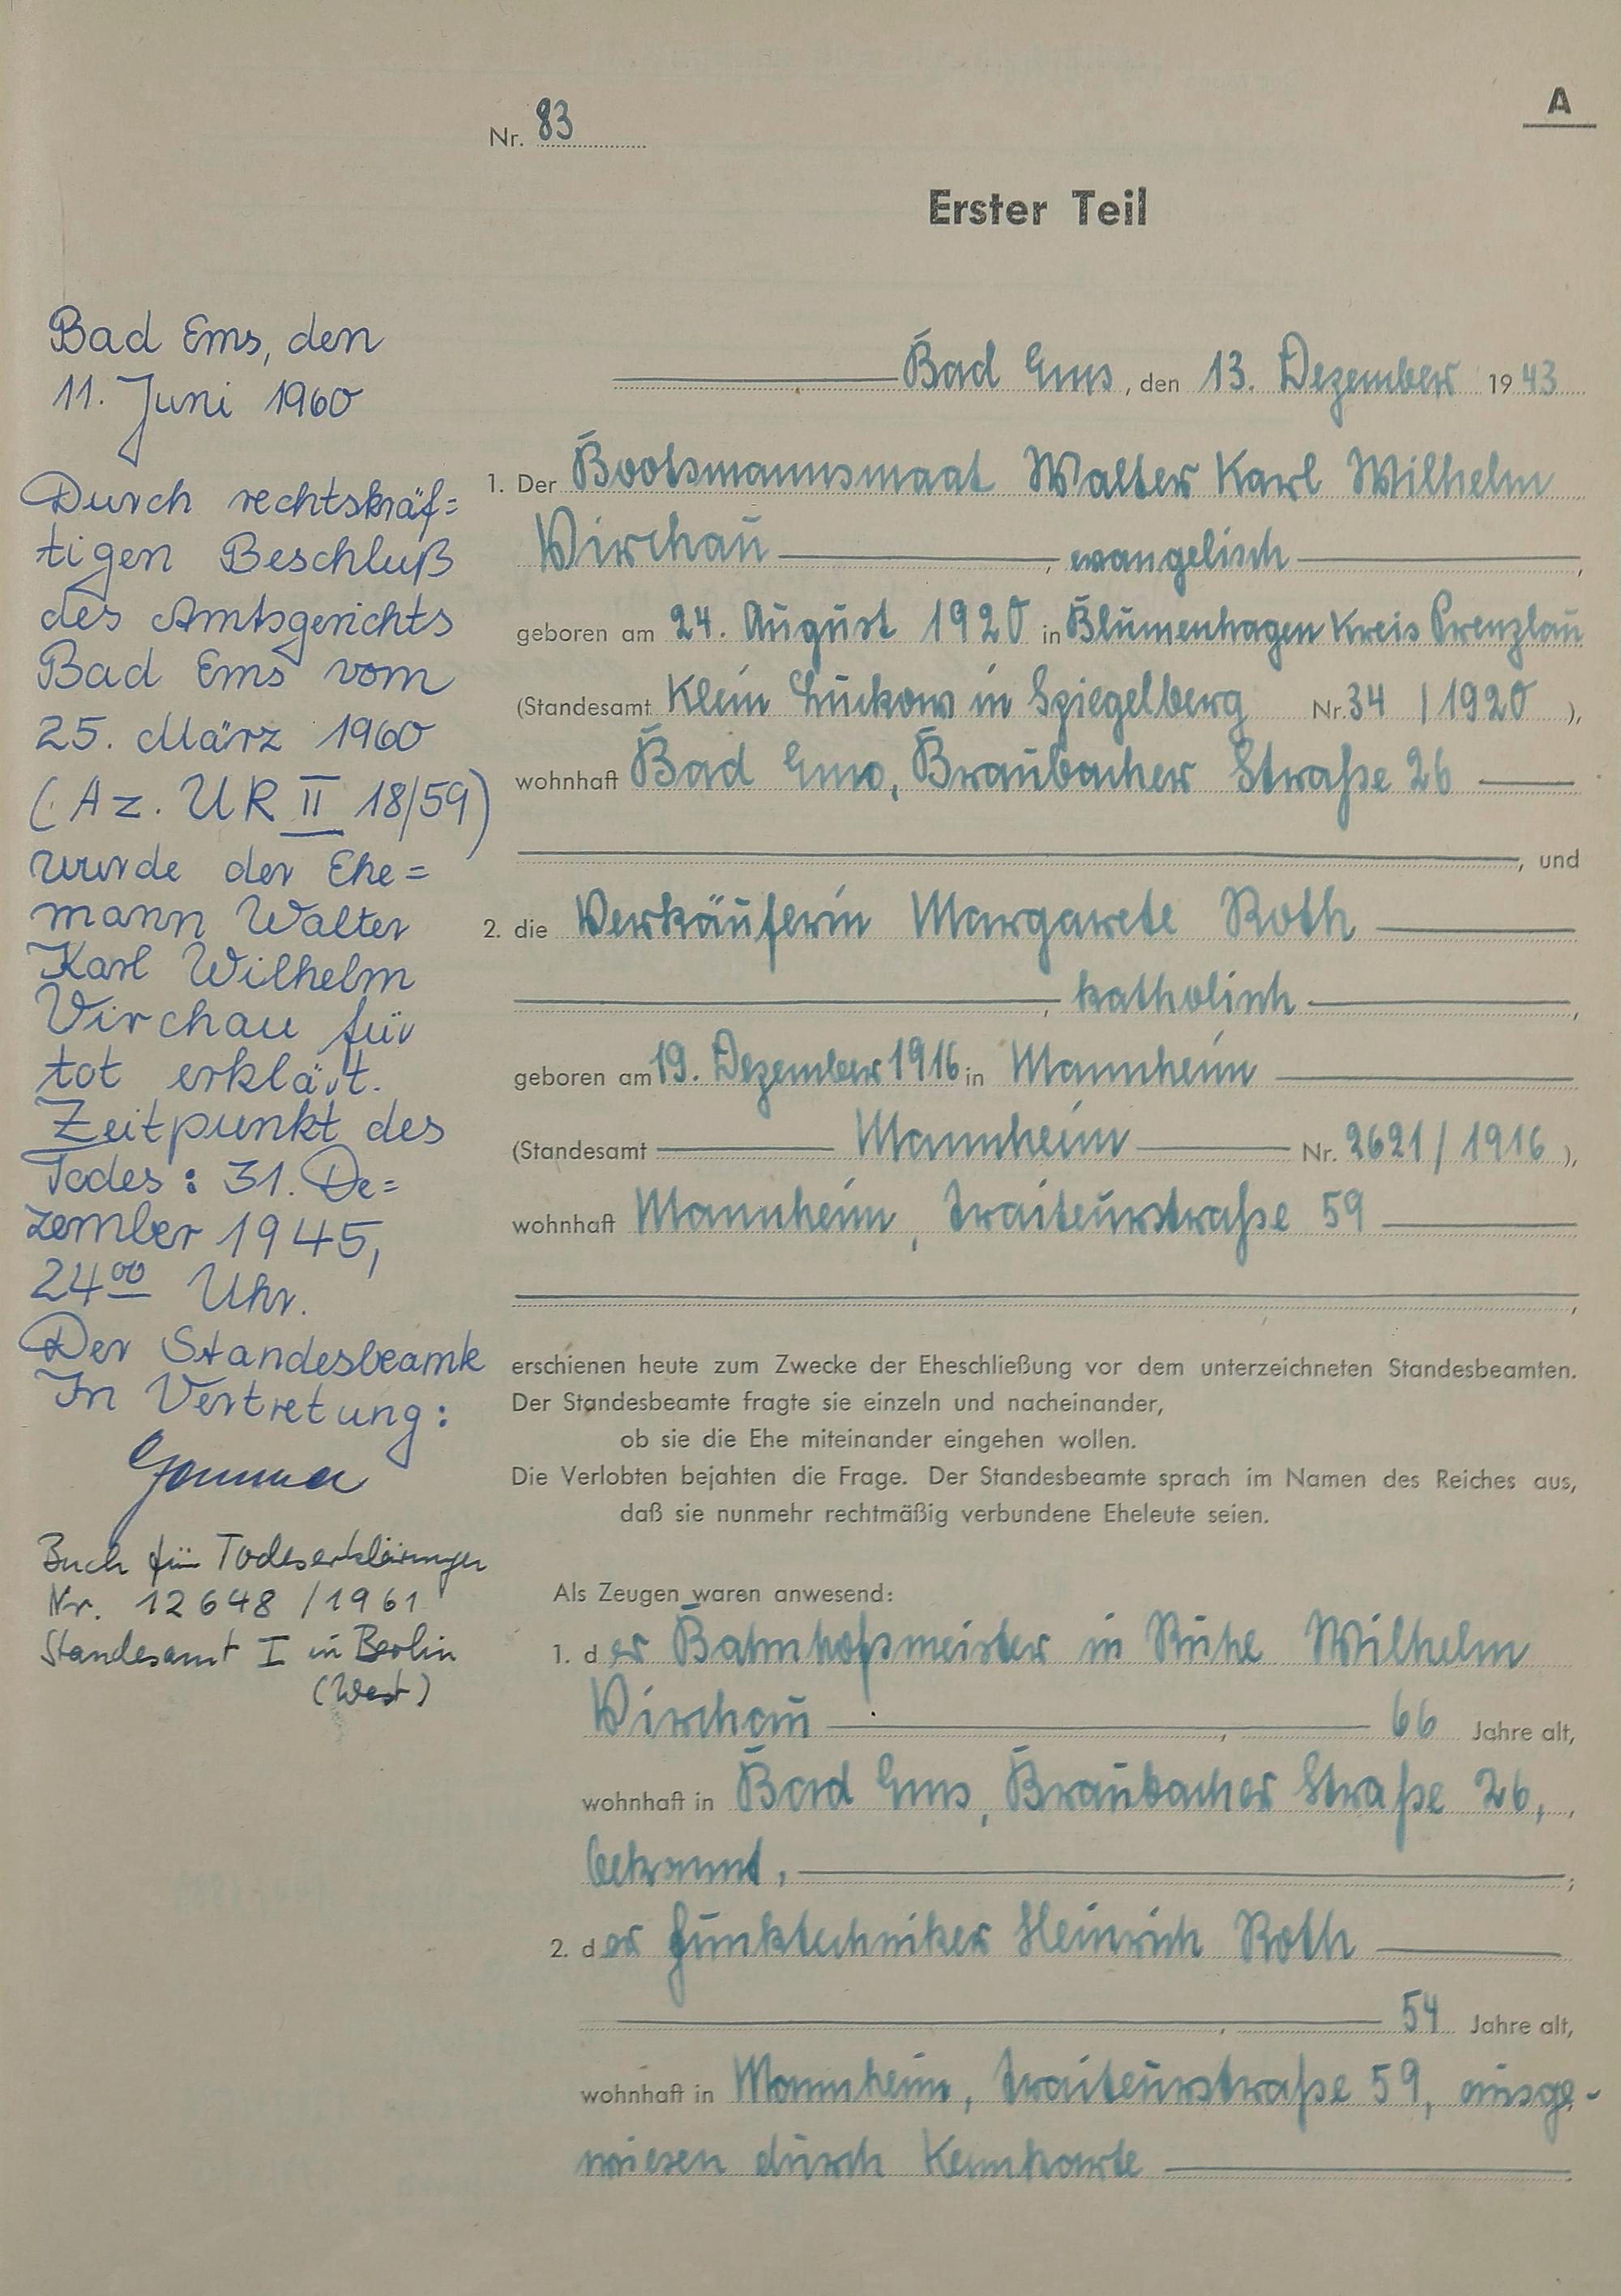 A
Nr. 83
Erster Teil
Bad Ems, den 13. Dezember 1943
1. Der Bootsmannsmaat Walter Karl Wilhelm
Virchau, evangelisch,
geboren am 24. August 1920 in Blumenhagen Kreis Prenzlau
(Standesamt Klein Luckow in Spiegelberg Nr. 34 / 1920 ),
wohnhaft Bad Ems, Braubacher Straße 26
, und
2. die Verkäuferin Margarete Roth
, katholisch,
geboren am 19. Dezember 1916 in Mannheim
(Standesamt Mannheim Nr. 2621 / 1916 ),
wohnhaft Mannheim, Traiteurstraße 59
,
erschienen heute zum Zwecke der Eheschließung vor dem unterzeichneten Standesbeamten.
Der Standesbeamte fragte sie einzeln und nacheinander,
ob sie die Ehe miteinander eingehen wollen.
Die Verlobten bejahten die Frage. Der Standesbeamte sprach im Namen des Reiches aus,
daß sie nunmehr rechtmäßig verbundene Eheleute seien.
Als Zeugen waren anwesend:
1. der Bahnhofsmeister in Ruhe Wilhelm
Virchau, 66 Jahre alt,
wohnhaft in Bad Ems, Braubacher Straße 26,,
bekannt,;
2. der Funktechniker Heinrich Roth
, 54 Jahre alt,
wohnhaft in Mannheim, Traiteurstraße 59, ausge-
wiesen durch Kennkarte
Bad Ems, den
11. Juni 1960
Durch rechtskräf=
tigen Beschluß
des Amtsgerichts
Bad Ems vom
25. März 1960
(Az. UR II 18/59)
wurde der Ehe=
mann Walter
Karl Wilhelm
Virchau für
tot erklärt.
Zeitpunkt des
Todes: 31. De=
zember 1945,
24⁰⁰ Uhr.
Der Standesbeamte
In Vertretung:
Buch für Todeserklärungen
Nr. 12648/1961
Standesamt I in Berlin
(West)